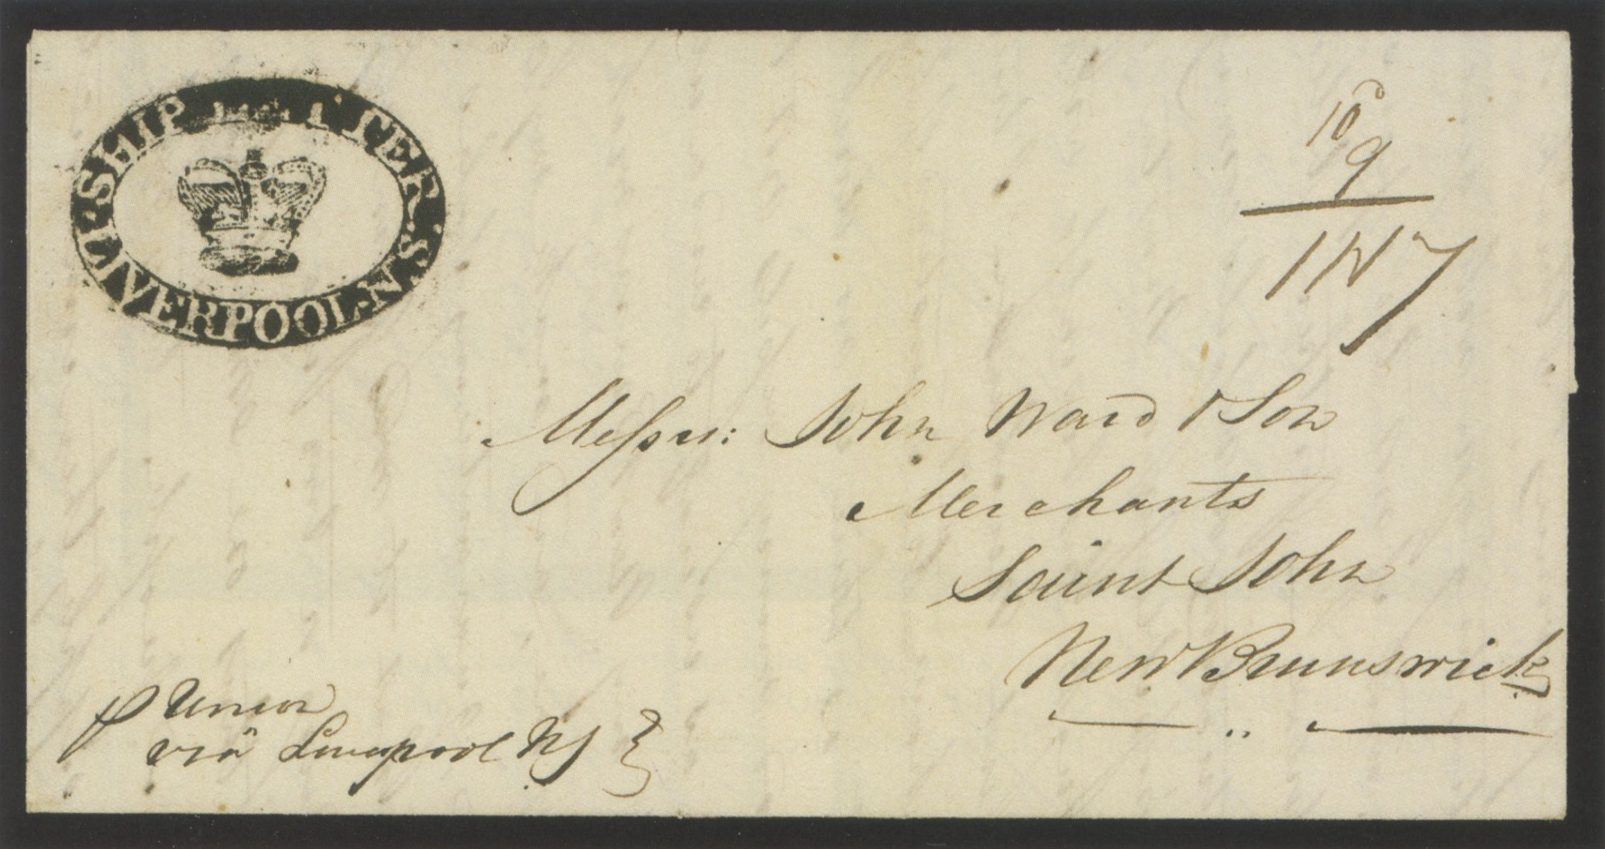 SHIP LETTER
LIVERPOOL·N·S·
10d
9
1N7
Messrs: John Ward & Son
Merchants
Saint John
New Brunswick
p Union
via Liverpool NS